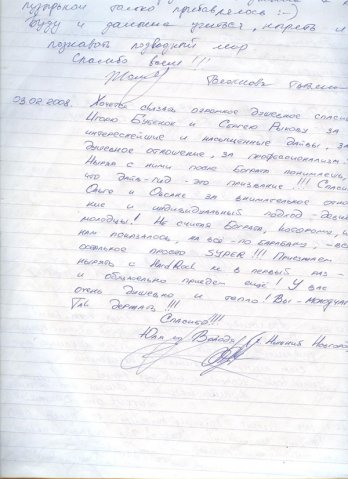 пузырьком только прибавлялось :-)
Буду и дальше учиться, нырять и
познавать подводный мир
Спасибо всем!!!
23.02.2008. Хочется сказать огромное душевное спаси
Игорю Буженок и Сергею за
интереснейшие и насыщенные дайвы, за
душевное отношение, за профессионализм.
Ныряя с ними после понимаешь,
что дайв-гид - это призвание!!! Спаси
Ольге и Оксане за внимательное отно
ние и индивидуальный подход -
молодцы! Не считая
нам показалось, на все - по барабану, - вс
остальное просто SУPER!!! Приезжаем
нырять с Hard Rock м. в первый раз -
и обязательно приедем ещё! У вас
очень душевно и тепло! Вы - молодцы
Так держать!!!
Спасибо!!!
Юля и Володя, г. Нижний Новгород